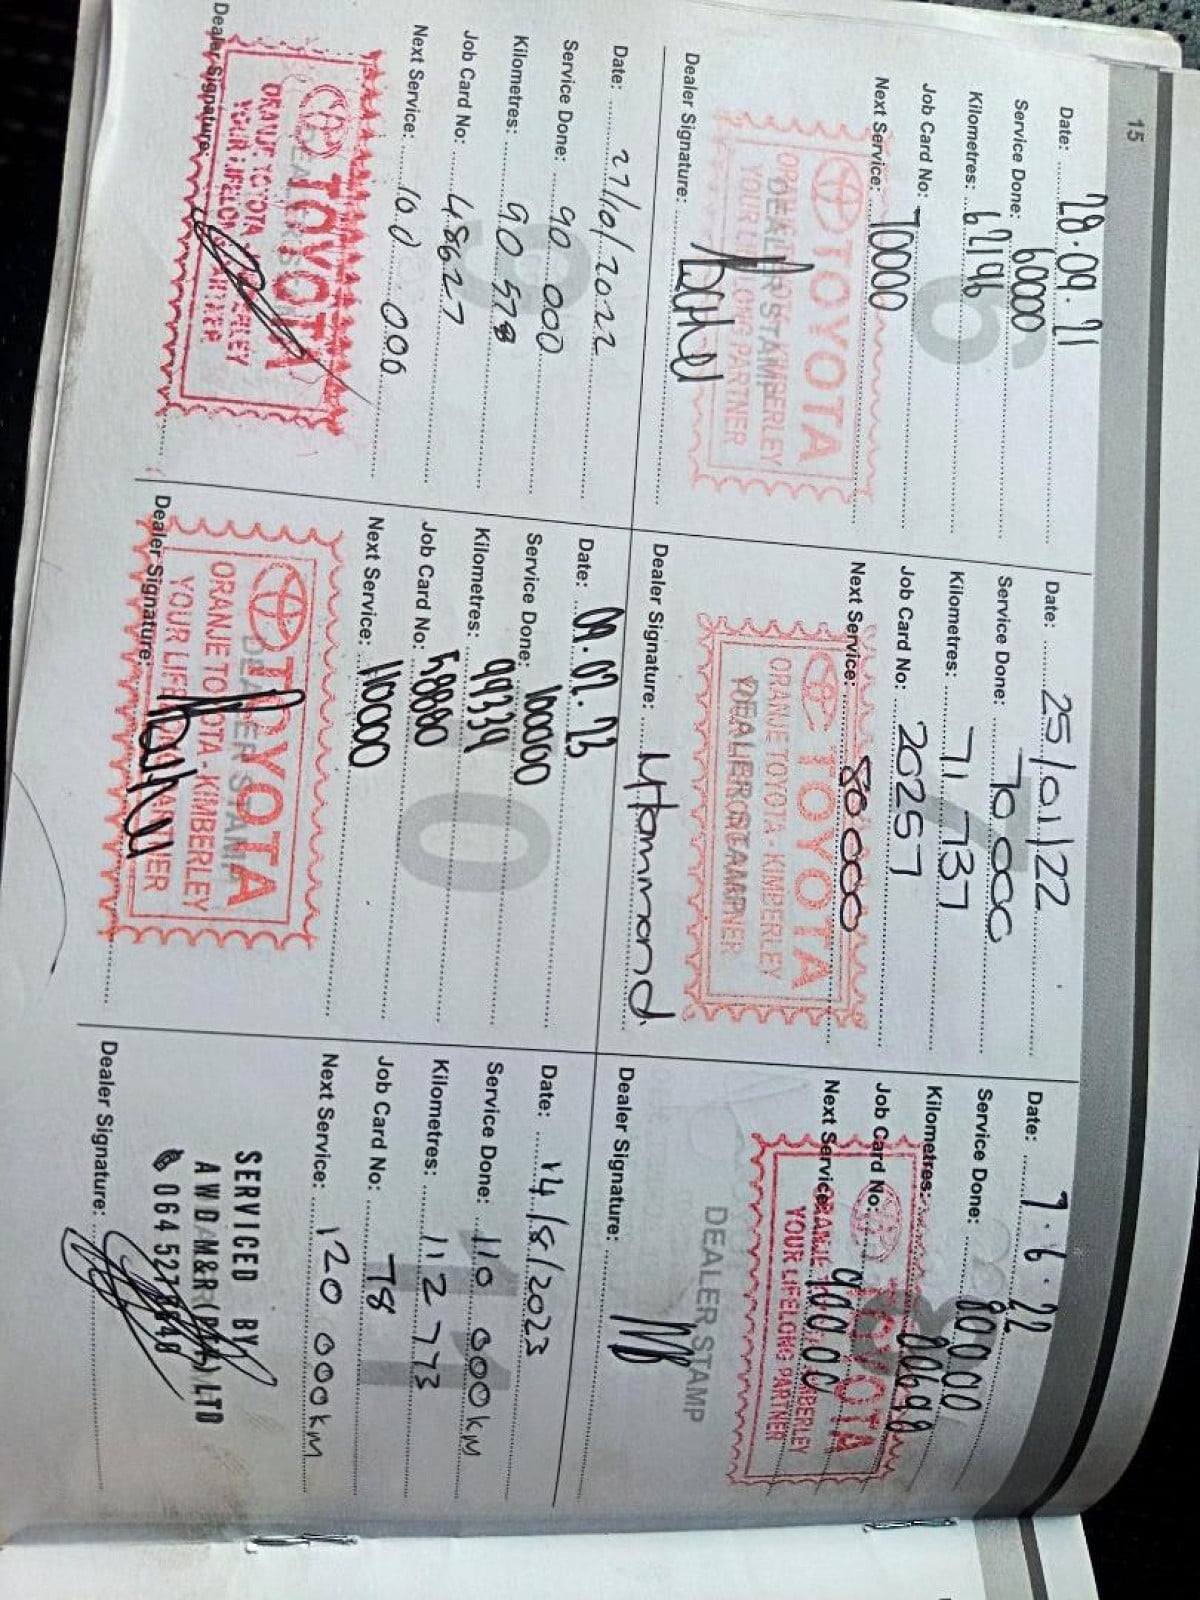 15
6
Date: 28.09.21
Service Done: 60000
Kilometres: 62196
Job Card No:
Next Service: 70000
TOYOTA
ORANJE TOYOTA - KIMBERLEY
YOUR LIFELONG PARTNER
DEALER STAMP
Dealer Signature:
7
Date: 25/01/22
Service Done: 70 000
Kilometres: 71 737
Job Card No: 202257
Next Service: 80 000
TOYOTA
ORANJE TOYOTA - KIMBERLEY
YOUR LIFELONG PARTNER
DEALER STAMP
Dealer Signature: M Hammond
8
Date: 7.6.22
Service Done: 80000
Kilometres:
Job Card No:
Next Service: 90000
TOYOTA
ORANJE TOYOTA - KIMBERLEY
YOUR LIFELONG PARTNER
DEALER STAMP
Dealer Signature:
9
Date: 27/10/2022
Service Done: 90 000
Kilometres: 90 578
Job Card No: 48627
Next Service: 100 000
TOYOTA
ORANJE TOYOTA - KIMBERLEY
YOUR LIFELONG PARTNER
DEALER STAMP
Dealer Signature:
10
Date: 09.02.23
Service Done: 100000
Kilometres: 99339
Job Card No: 58880
Next Service: 110000
TOYOTA
ORANJE TOYOTA - KIMBERLEY
YOUR LIFELONG PARTNER
DEALER STAMP
Dealer Signature:
11
Date: 14/8/2023
Service Done: 110 000KM
Kilometres: 112 773
Job Card No: 78
Next Service: 120 000KM
SERVICED BY
AWD M&R (PTY) LTD
064 527
Dealer Signature: